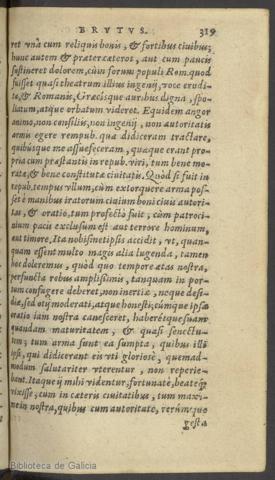 BRVTVS. 319
ret vnà cum reliquis bonis, & fortibus ciuibus;
hunc autem & præter cæteros, aut cum paucis
sustineret dolorem, cùm forum populi Rom. quod
fuisset quasi theatrum illius ingenij, voce erudi-
ta, & Romanis, Græcisque auribus digna, spo-
liatum, atque orbatum videret. Equidem angor
animo, non consilij, non ingenij, non autoritatis
armis egere rempub. quæ didiceram tractare,
quibúsque me assuefeceram, quæque erant pro-
pria cum præstantis in repub. viri, tum bene mo-
ratæ, & bene constitutæ ciuitatis. Quòd si fuit in
repub. tempus vllum, cùm extorquere arma pos-
set è manibus iratorum ciuium boni ciuis autori-
tas, & oratio, tum profectò fuit, cùm patroci-
nium pacis exclusum est aut terrore hominum,
aut timore. Ita nobismetipsis accidit, vt, quan-
quam essent multo magis alia lugenda, tamen
hoc doleremus, quòd quo tempore ætas nostra,
perfuncta rebus amplissimis, tanquam in por-
tum confugere deberet, non inertiæ, neque desi-
diæ, sed otij moderati, atque honesti; cúmque ipsa
oratio iam nostra canesceret, haberétque suam
quandam maturitatem, & quasi senectu-
tem; tum arma sunt ea sumpta, quibus illi
ipsi, qui didicerant eis vti gloriosè, quemad-
modum salutariter vterentur, non reperie-
bant. Itaque ij mihi videntur, fortunatè, beatéq;
vixisse, cum in cæteris ciuitatibus, tum maxi-
mè in nostra, quibus cum autoritate, rerúmque
gesta
Biblioteca de Galicia